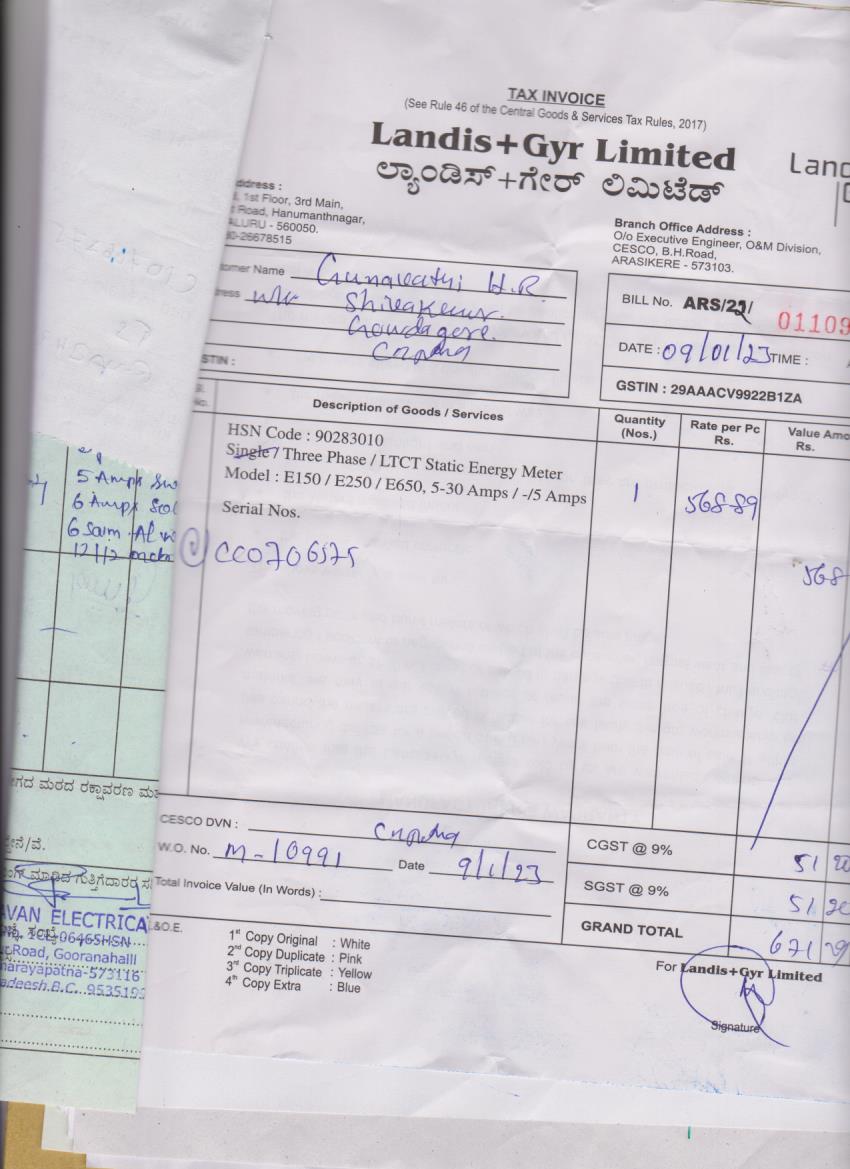 TAX INVOICE
(See Rule 46 of the Central Goods & Services Tax Rules, 2017)
Landis+Gyr Limited
Land
ಲ್ಯಾಂಡಿಸ್+ಗೇರ್ ಲಿಮಿಟೆಡ್
ddress :
1st Floor, 3rd Main,
Road, Hanumanthnagar,
ALURU - 560050.
0-26678515
Branch Office Address :
O/o Executive Engineer, O&M Division,
CESCO, B.H.Road,
ARASIKERE - 573103.
omer Name Gunavathi H.R.
ress w/o Shivakumar.
Gowdagere.
Cnpna
STIN :
BILL No. ARS/22/ 01109
DATE : 09/01/23 TIME :
GSTIN : 29AAACV9922B1ZA
Description of Goods / Services
Quantity (Nos.)
Rate per Pc Rs.
Value Amo Rs.
HSN Code : 90283010
Single / Three Phase / LTCT Static Energy Meter
Model : E150 / E250 / E650, 5-30 Amps / -/5 Amps
1
568-89
568
Serial Nos.
CC0706575
5 Amps
6 Amps
CESCO DVN : Cnpna
W.O. No. M-10991 Date 9/1/23
Total Invoice Value (In Words) :
CGST @ 9% 51 20
SGST @ 9% 51 20
GRAND TOTAL 671 29
&O.E.
1st Copy Original : White
2nd Copy Duplicate : Pink
3rd Copy Triplicate : Yellow
4th Copy Extra : Blue
For Landis+Gyr Limited
Signature
ಗದ ಮಠದ ರಕ್ಷಾವರಣ ಮ
AVAN ELECTRICA
06465HSN
Road, Gooranahalli
narayapatna-573116
adeesh.B.C. 953519